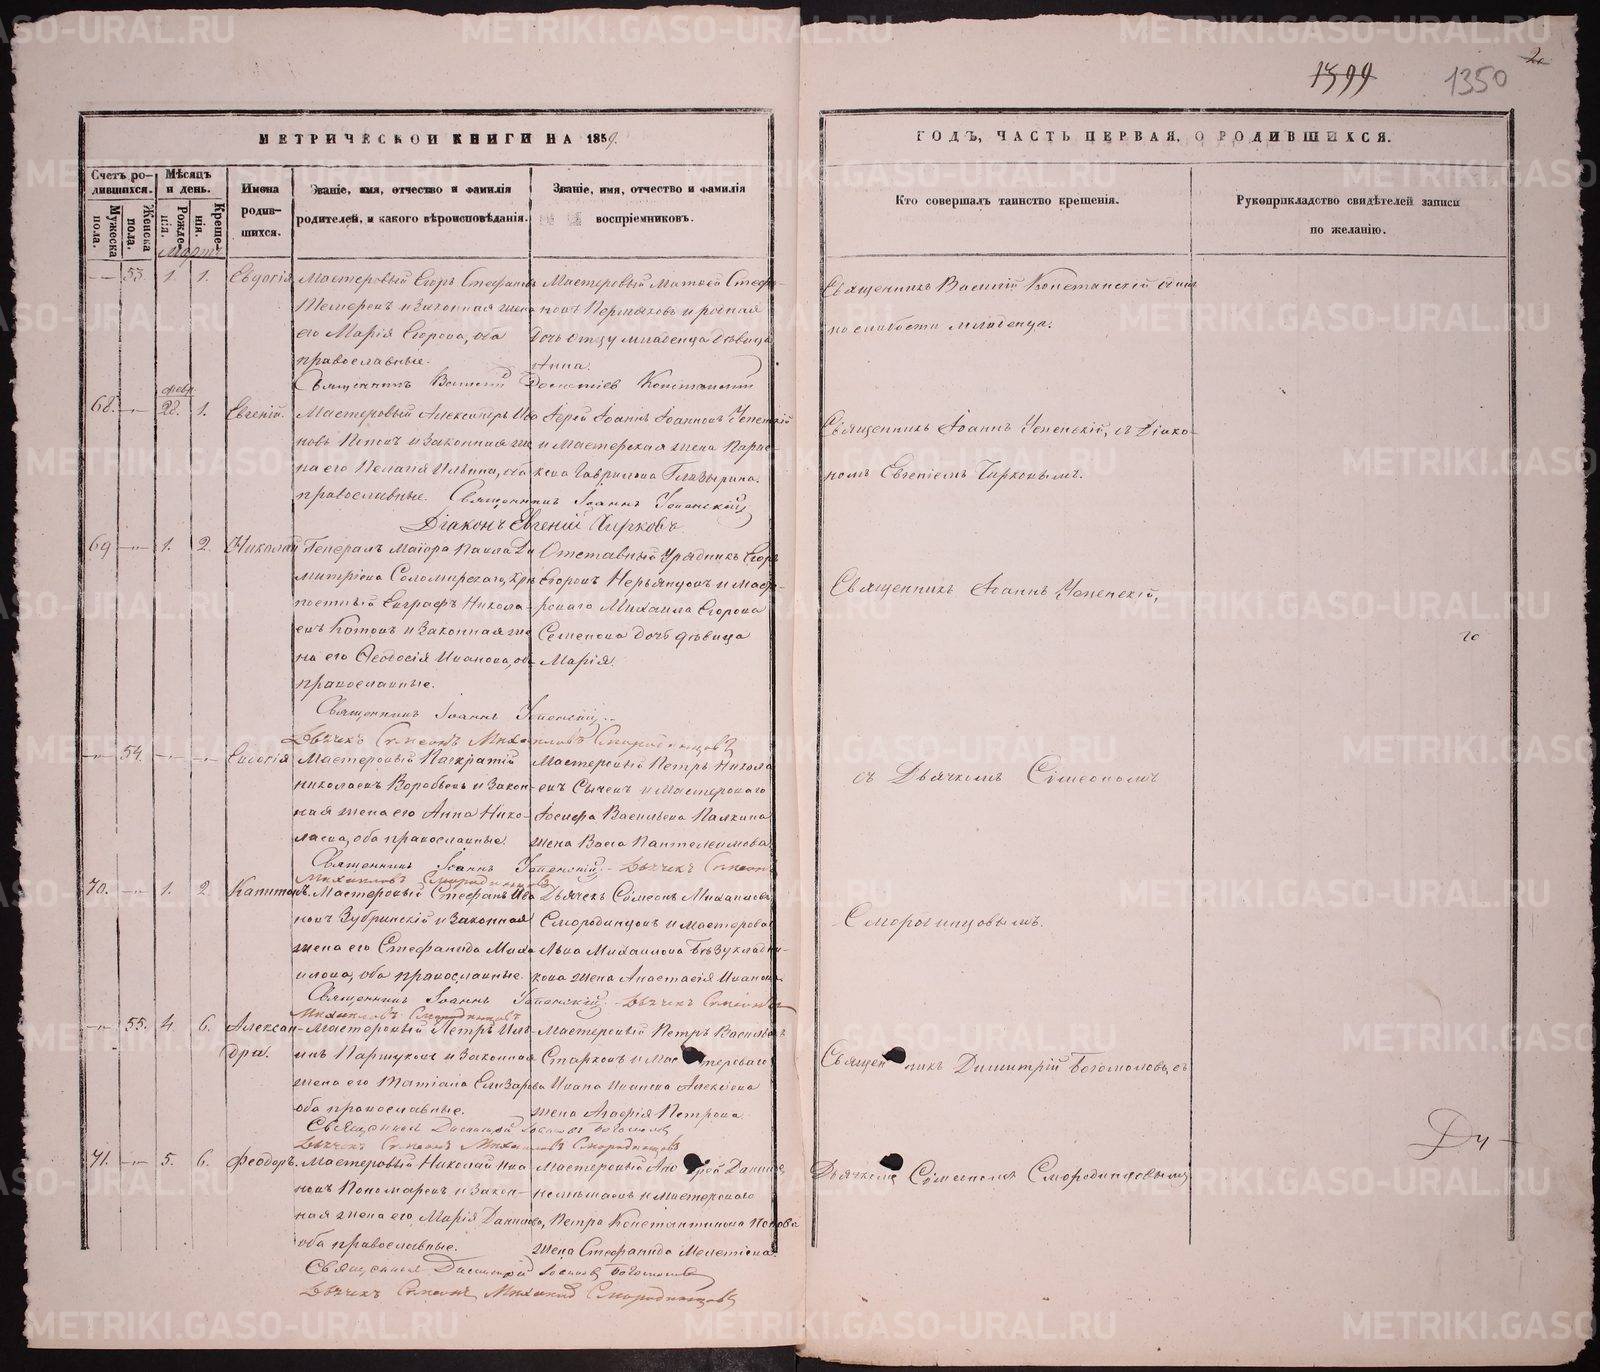 1399 1350
МЕТРИЧЕСКОЙ КНИГИ НА 1859.
ГОДЪ, ЧАСТЬ ПЕРВАЯ, О РОДИВШИХСЯ.
Счетъ родившихся.
Мужеска пола.
Женска пола.
Мѣсяцъ и день.
Рожденія.
Крещенія.
Имена родившихся.
Званіе, имя, отчество и фамилія родителей, и какого вѣроисповѣданія.
Званіе, имя, отчество и фамилія воспріемниковъ.
Кто совершалъ таинство крещенія.
Рукоприкладство свидѣтелей записи по желанію.
Мартъ
53. 1. 1. Евдокія
Мастеровый Егоръ Стефановъ
и законная жена
его Марія Егорова, оба
православные.
Мастеровый Матѳей Стефа-
новъ Пермяковъ и родная
дочь отцу младенца дѣвица
Анна.
Священникъ Василій
по слабости младенца.
февр.
68. 28. 1. Евгеній.
Мастеровый Александръ Ива-
новъ Поповъ и законная же-
на его Пелагія Ильина, оба
православные.
Іерей Іоаннъ Іоанновъ Успенскій
и мастерская жена Парас-
кева Гаврилова Глазырина.
Священникъ Іоаннъ Успенскій
Діаконъ Евгеній Чирковъ
Священникъ Іоаннъ Успенскій, съ Діако-
номъ Евгеніемъ Чирковымъ.
69 1. 2. Николай
Генералъ Маіора Павла Ди-
митріева Соломирскаго, кре-
постный Евграфъ Никола-
евъ Котовъ и законная же-
на его Ѳеодосія Иванова, оба
православные.
Отставный Урядникъ Егоръ
Егоровъ и масте-
роваго Михаила Егорова
Семенова дочь дѣвица
Марія.
Священникъ Іоаннъ Успенскій
Дьячекъ Симеонъ Михаиловъ Смородинцовъ
Священникъ Іоаннъ Успенскій,
54. Евдокія
Мастеровый Панкратій
Николаевъ Воробьевъ и закон-
ная жена его Анна Нико-
лаева, оба православные.
Мастеровый Петръ Никола-
евъ Сычевъ и мастероваго
Іосифа Васильева Палкина
жена Васса Пантелеимонова
Священникъ Іоаннъ Успенскій. Дьячекъ Симеонъ
Михаиловъ Смородинцовъ
съ Дьячкомъ Симеономъ
70. 1. 2. Капитонъ.
Мастеровый Стефанъ Ива-
новъ Зубринскій и законная
жена его Стефанида Миха-
илова, оба православные.
Дьячекъ Симеонъ Михаиловъ
Смородинцовъ и мастерова
Льва Михаилова Безукладни-
кова жена Анастасія Иванова
Священникъ Іоаннъ Успенскій. Дьячекъ Симеонъ
Михаиловъ Смородинцовъ
Смородинцовымъ.
55. 4. 6. Алексан-
дра.
Мастеровый Петръ Иль-
инъ Паршуковъ и законная
жена его Татіана Елизарова
оба православные.
Мастеровый Петръ Васильевъ
Старковъ и мастероваго
Ивана Иванова Алексѣева
жена Агафія Петрова
Священникъ Димитрій Богомоловъ
Дьячекъ Симеонъ Михаиловъ Смородинцовъ
Священникъ Димитрій Богомоловъ, съ
71. 5. 6. Ѳеодоръ.
Мастеровый Николай Ива-
новъ Пономаревъ и закон-
ная жена его Марія Данилова,
оба православные.
и мастероваго
Петра Константинова Попова
жена Стефанида Мелетіева.
Священникъ Димитрій Богомоловъ
Дьячекъ Симеонъ Михаиловъ Смородинцовъ
Дьячкомъ Симеономъ Смородинцовымъ
METRIKI.GASO-URAL.RU